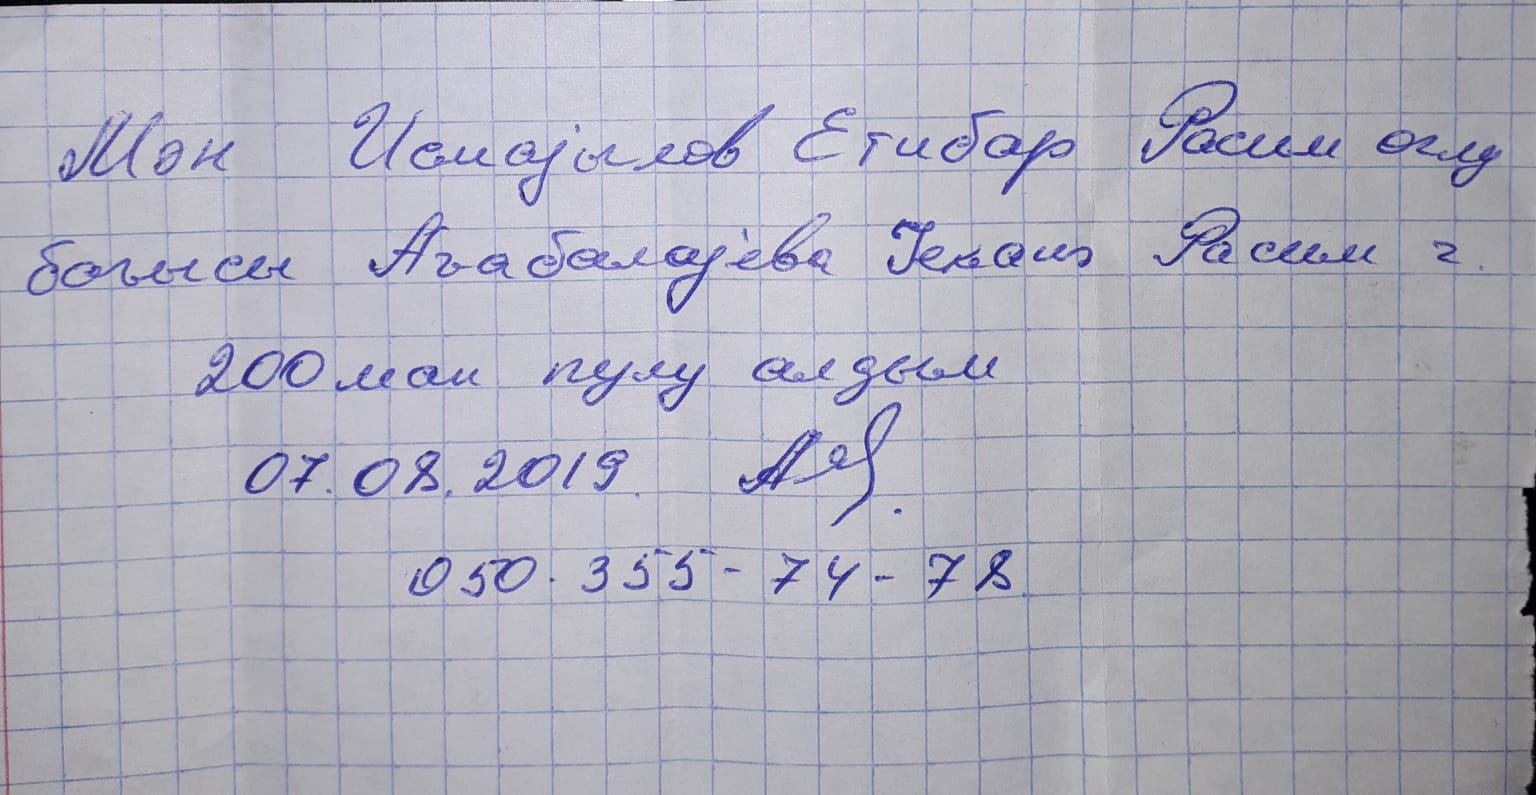 Мән Исмајылов Етибар Расим оглу
багысы Агабалајева Расим г.
200 ман пулу алдым
07.08.2019.
050-355-74-78